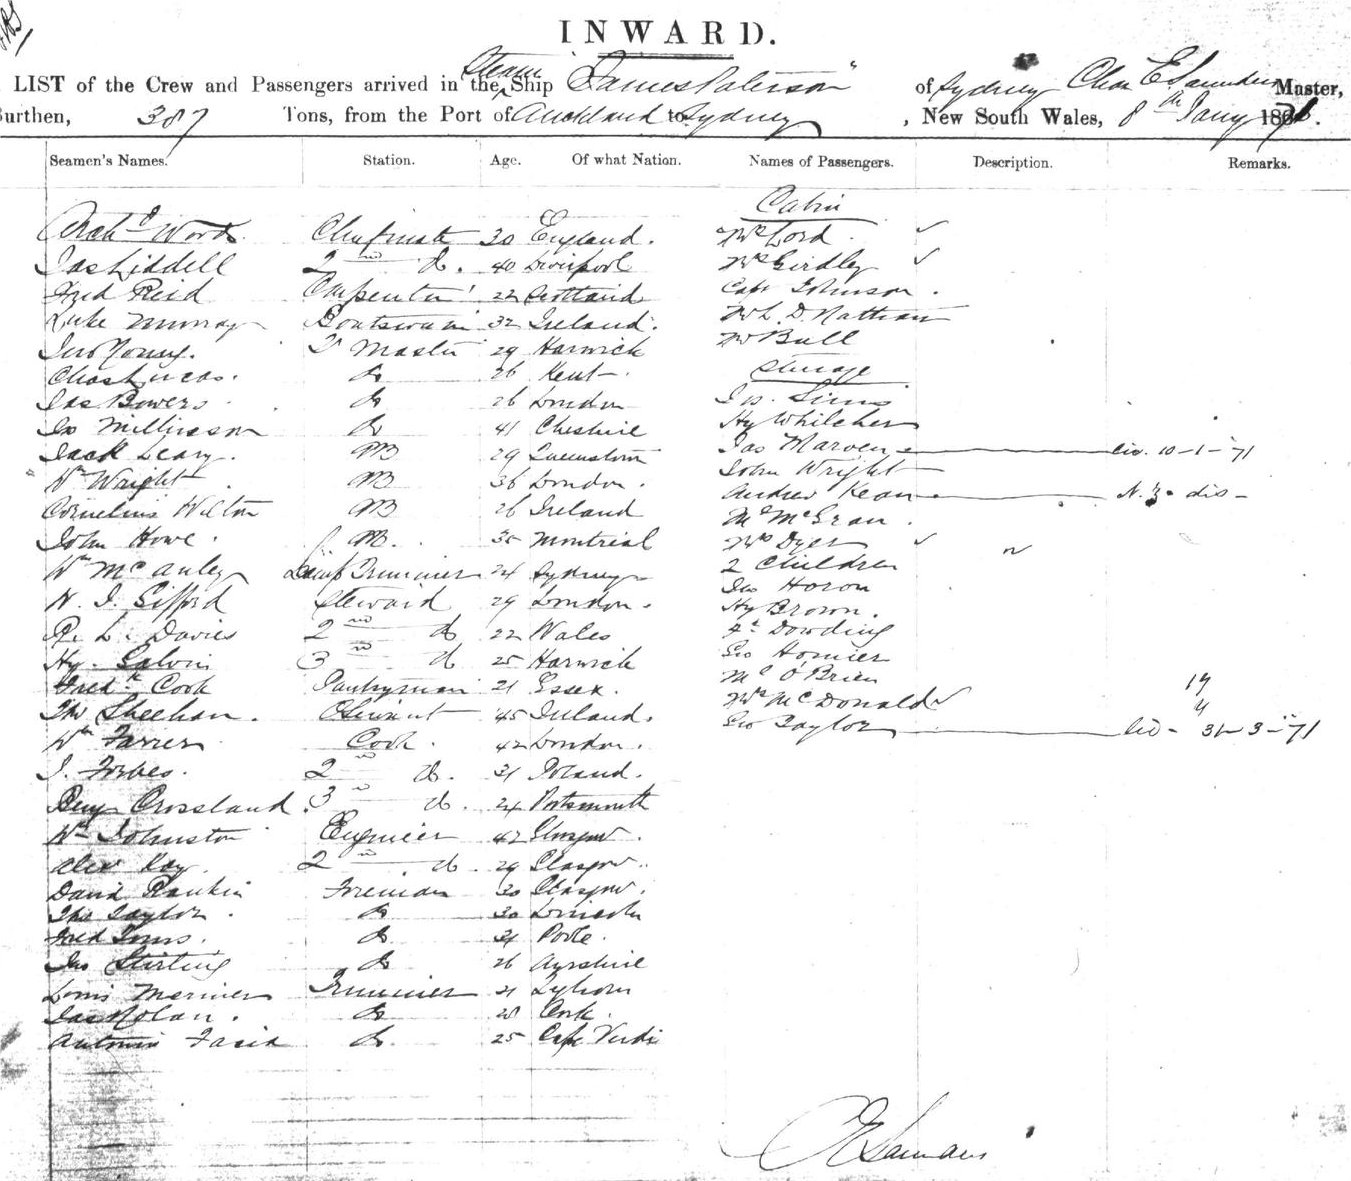 INWARD.
LIST of the Crew and Passengers arrived in the Steam Ship "James Paterson" of Sydney Chas E Saunders Master,
Burthen, 387 Tons, from the Port of Auckland to Sydney, New South Wales, 8th Jany 1871.
Seamen's Names. Station. Age. Of what Nation. Names of Passengers. Description. Remarks.
Archd Woods Chief mate 30 England.
Jas Liddell 2nd do. 40 Liverpool
Fred Reid Carpenter 22 Scotland
Luke Murray Boatswain 32 Ireland.
Jno Young. Master 29 Harwick
Chas Lucas. do 26 Kent
Jas Bowers do 26 London
Jo Millinson do 41 Cheshire
Jack Leary. AB 29 Queenstown
Wm Wright AB 36 London.
Cornelius Wilton AB 26 Ireland
John Howe. AB. 35 Montreal
Wm McAuley Lamp Trimmer 24 Sydney
H. J. Gifford Steward 29 London.
R. L. Davies 2nd do 22 Wales
Hy. Galvin 3rd do 25 Harwick
Fredk Cook Pantryman 21 Essex.
Thos Sheehan. 45 Ireland.
Wm Farrier Cook. 42 London.
J. Forbes. 2nd do. 31 Poland.
Benj Crossland 3rd do. 24 Portsmouth
Wm Johnston Engineer 42 Glasgow.
Alex Kay. 2nd do. 29 Glasgow.
David Rankin Fireman 30 Glasgow.
Thos Taylor. do 30 Lincoln
Fred Toms. do 31 Poole.
Jno Stirling do 26 Ayrshire
Louis Mariner Trimmer 21
Jas Nolan. do 28 Cork.
Antonio do. 25 Cape Verdi
Cabin
Mr Lord.
Mrs Girdley
Capt Johnson.
Mr L. D. Nathan
Mr Bull
Steerage
Jos. Sims
Hy Whilcher
Jas Marven 10-1-71
John Wright
Andrew Kean N.Z. dis
McGran.
Mrs Dyer
2 Children
Jno Horon
Hy Brown.
Dowding
Geo Homier
O'Brien
Mrs McDonald
Geo Taylor 31-3-71
C E Saunders